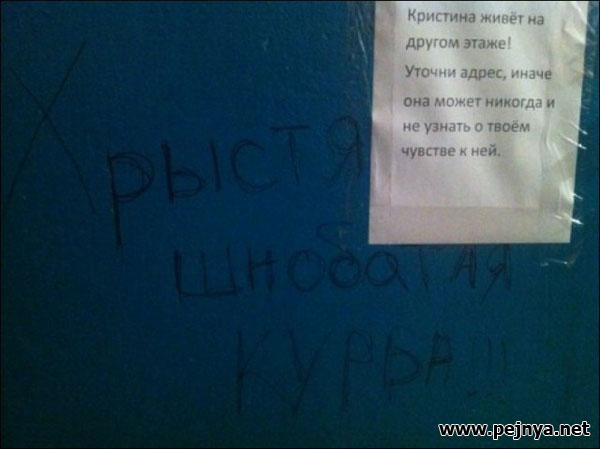 Кристина живёт на
другом этаже!
Уточни адрес, иначе
она может никогда и
не узнать о твоём
чувстве к ней.
ХРЫСТЯ
шнобатАЯ
КУРВА!!!
www.pejnya.net